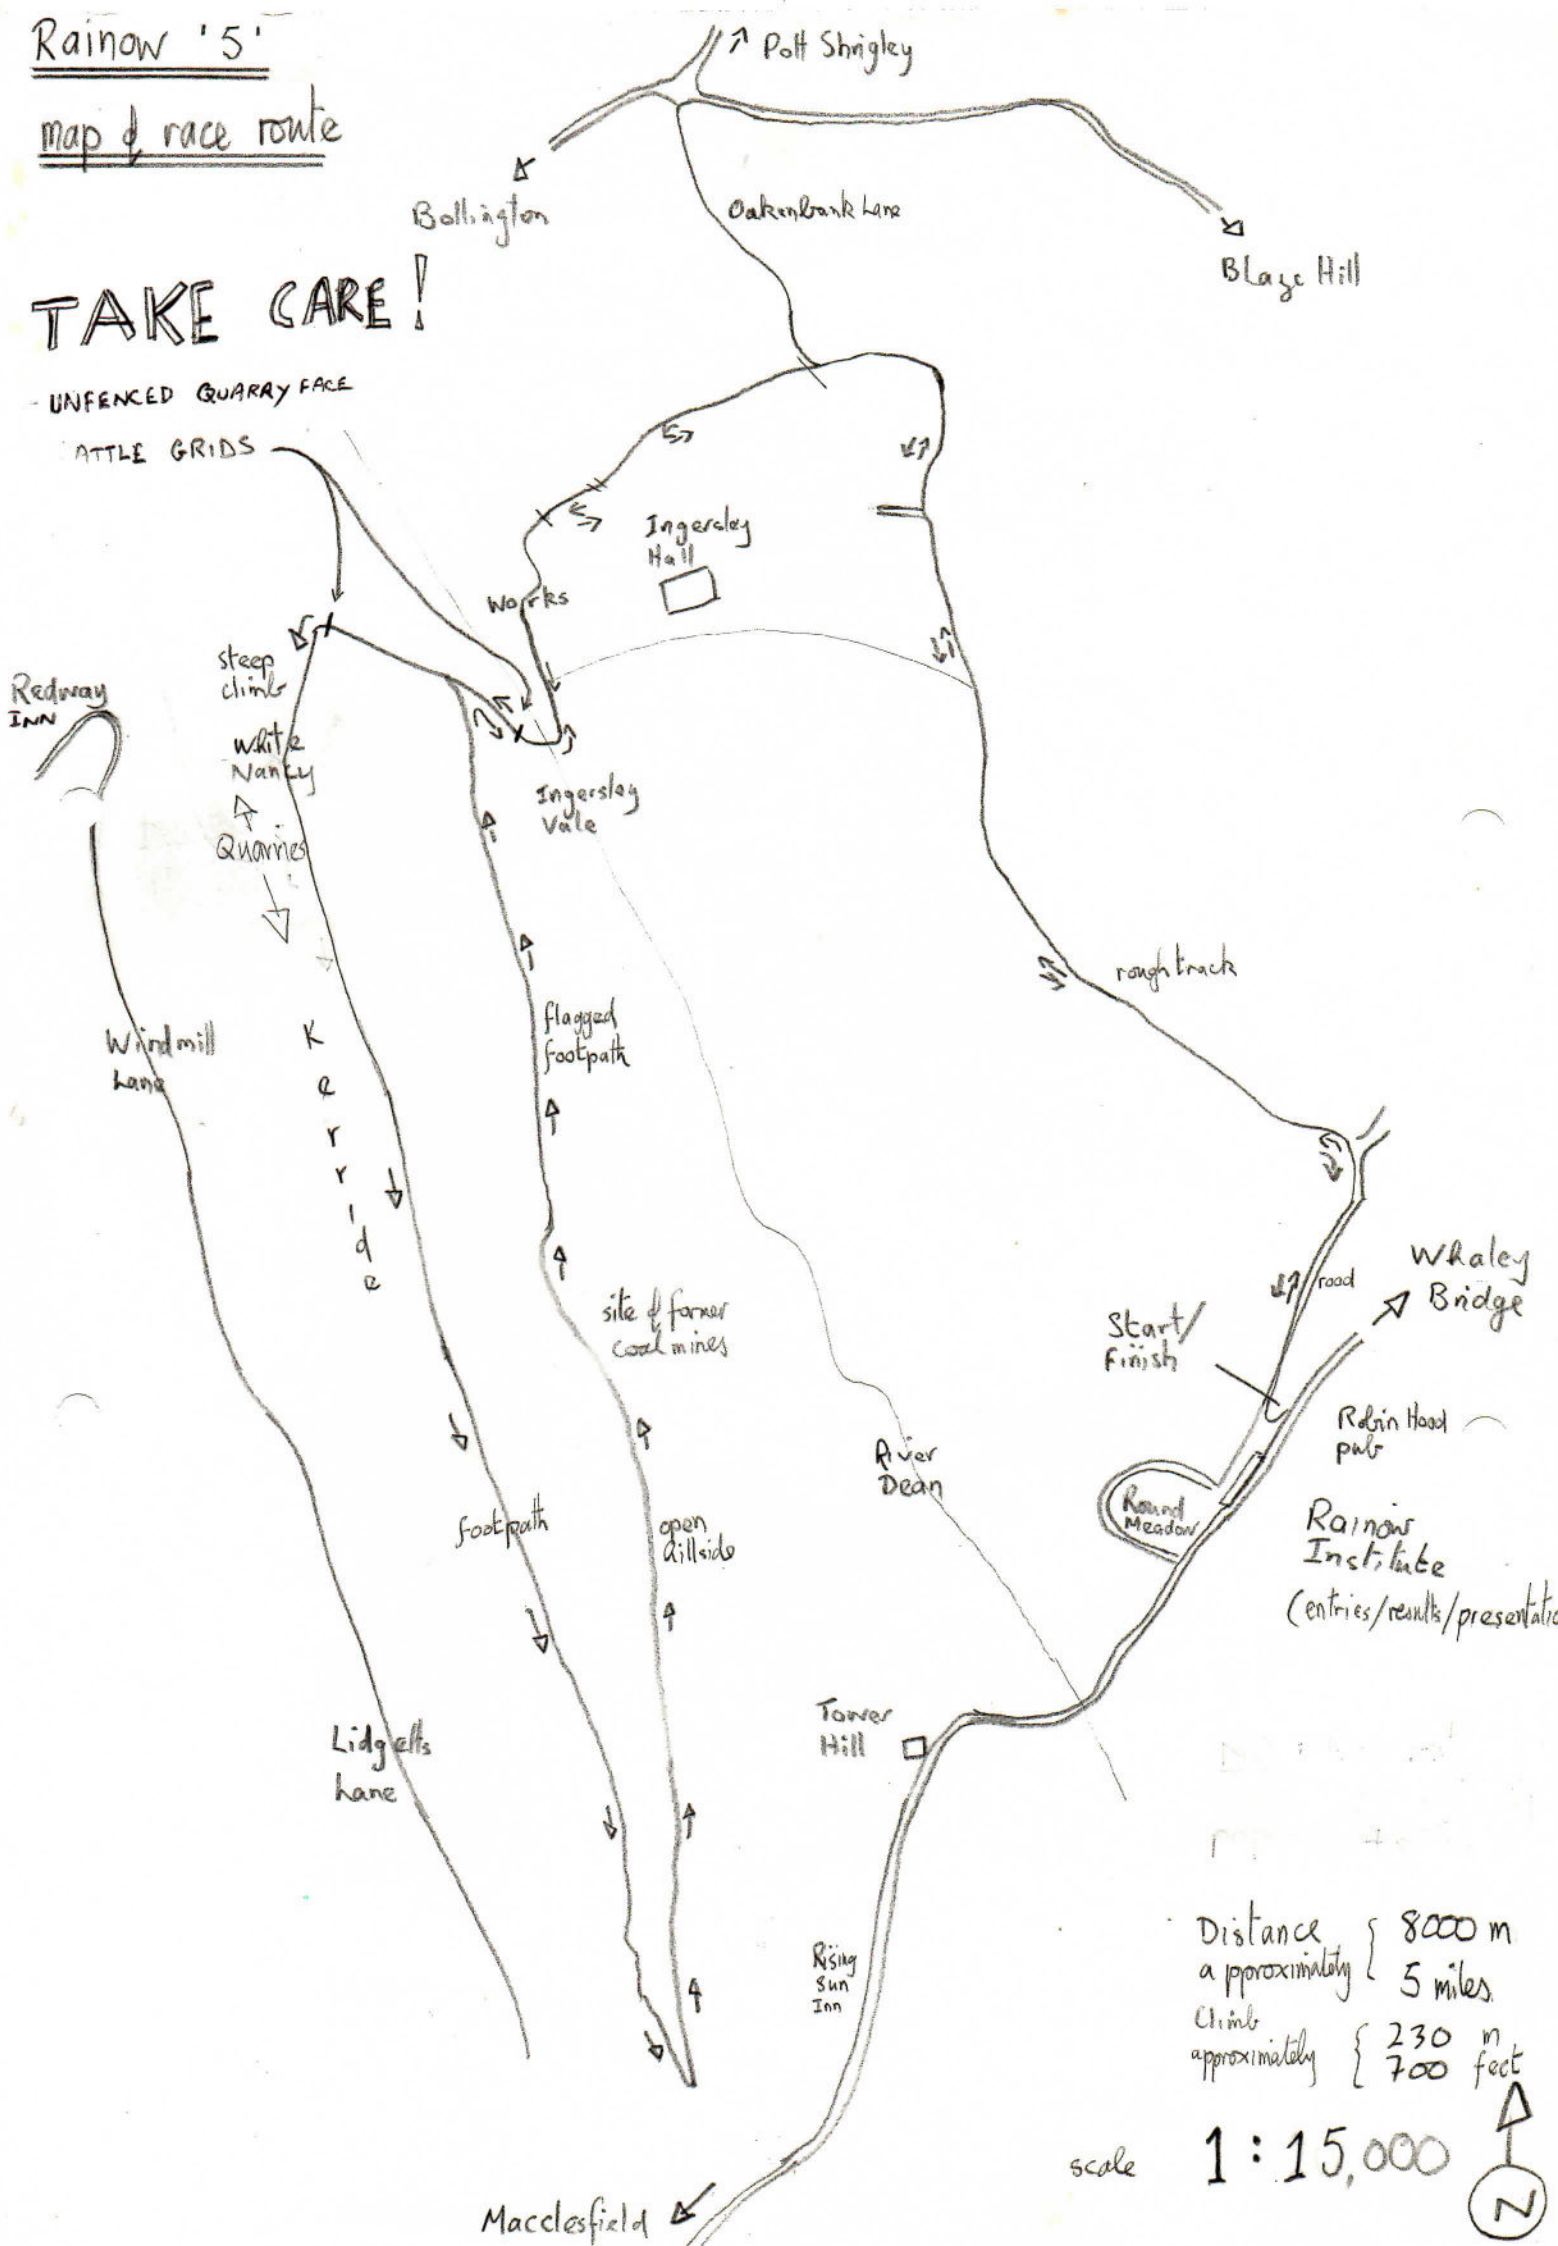 Rainow '5'
map & race route
Pott Shrigley
Bollington
Oakenbank Lane
Blaze Hill
TAKE CARE!
UNFENCED QUARRY FACE
ATTLE GRIDS
Ingersley
Hall
Works
steep
climb
Redway
INN
White
Nancy
Quarries
Ingersley
Vale
rough track
flagged
footpath
Windmill
Lane
Kerridge
site of former
coal mines
road
Whaley
Bridge
Start/
Finish
Robin Hood
pub
River
Dean
Round
Meadow
Rainow
Institute
(entries/results/presentatio
footpath
open
hillside
Tower
Hill
Lidgetts
Lane
Rising
Sun
Inn
Distance
approximately
8000 m
5 miles
Climb
approximately
230 m
700 feet
scale 1:15,000
N
Macclesfield